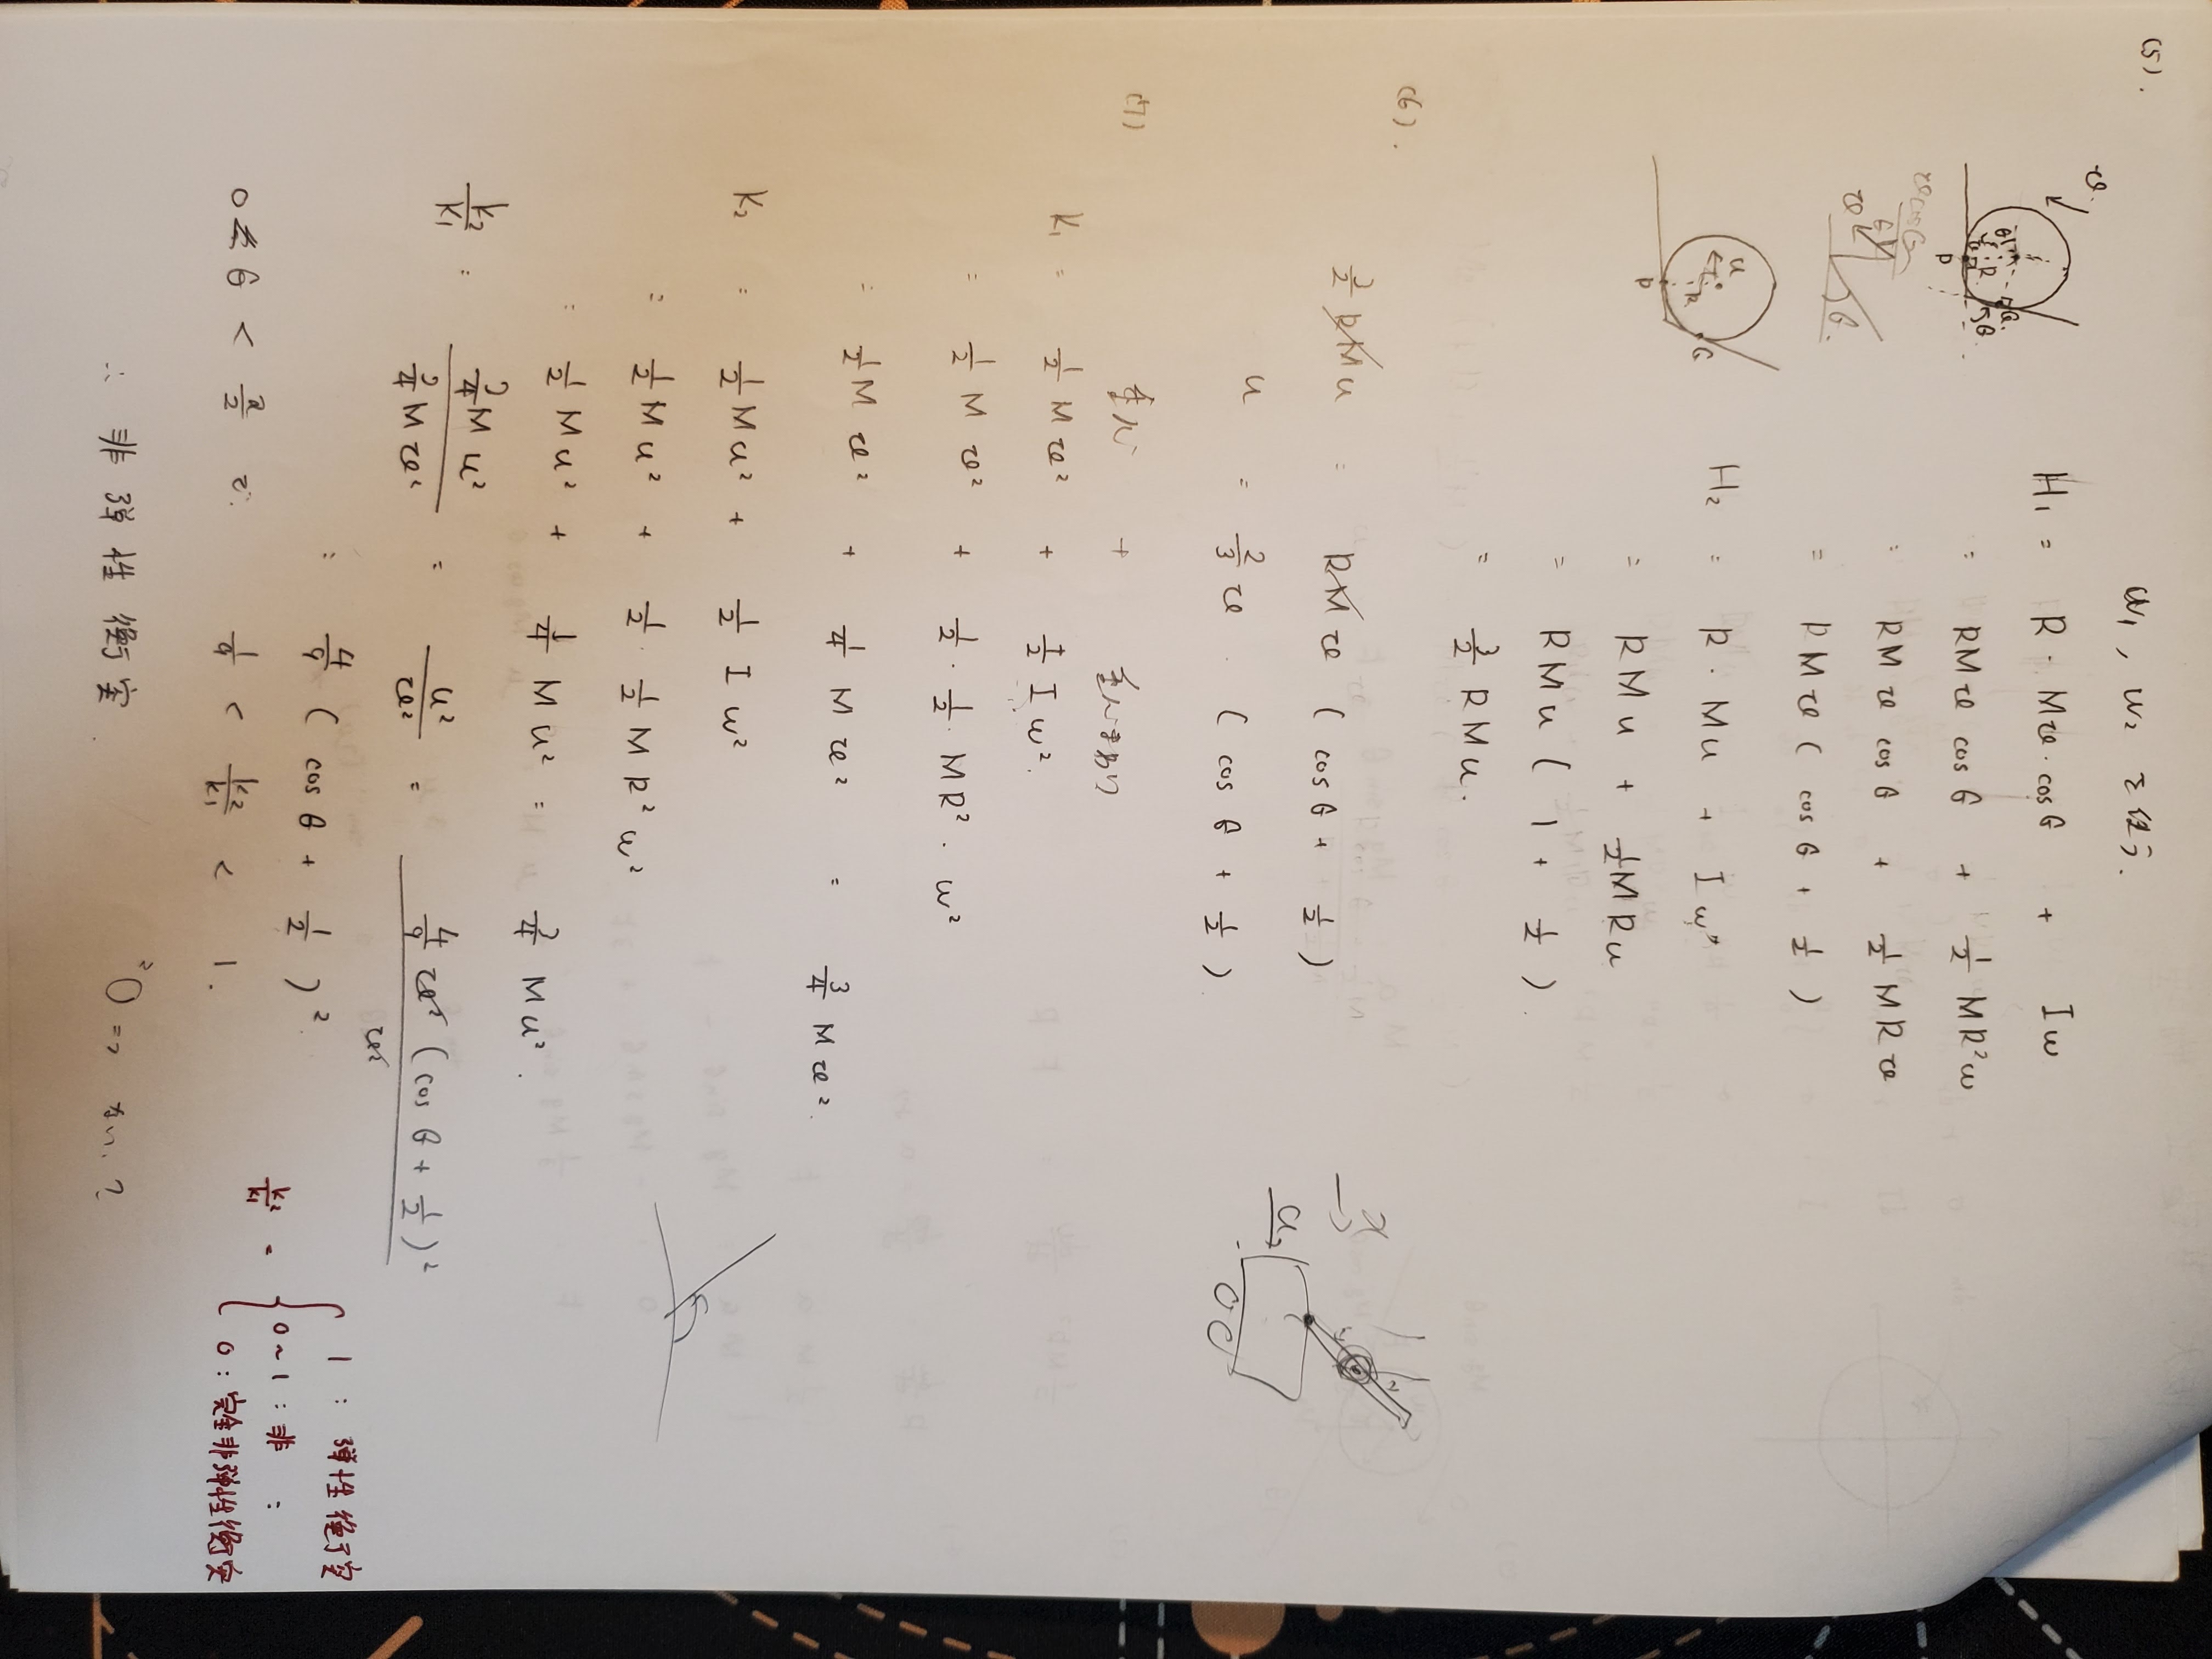 (5).
ω₁, ω₂ を使う.
H₁ = R・Mv・cosθ + Iω
= RMv cosθ + 1/2 MR²ω
= RMv cosθ + 1/2 MRv
= RMv ( cosθ + 1/2 )
H₂ = R・Mu + Iω"
= RMu + 1/2 MRu
= RMu ( 1 + 1/2 ).
= 3/2 RMu.
(6).
3/2 RMu = RMv ( cosθ + 1/2 )
u = 2/3 v ・ ( cosθ + 1/2 )
(7)
並 + まわり
K₁ = 1/2 Mv² + 1/2 Iω².
= 1/2 Mv² + 1/2・1/2・MR²・ω²
= 1/2 Mv² + 1/4 Mv² = 3/4 Mv².
K₂ = 1/2 Mu² + 1/2 Iω²
= 1/2 Mu² + 1/2・1/2 MR²ω²
= 1/2 Mu² + 1/4 Mu² = 3/4 Mu².
K₂/K₁ = 3/4 Mu² / 3/4 Mv² = u²/v² = 4/9 v² ( cosθ + 1/2 )² / v²
= 4/9 ( cosθ + 1/2 )²
0 ≤ θ < π/2 で 1/9 < K₂/K₁ < 1.
∴ 非弾性衝突.
K₂/K₁ = { 1 : 弾性衝突
0~1 : 非 :
0 : 完全非弾性衝突